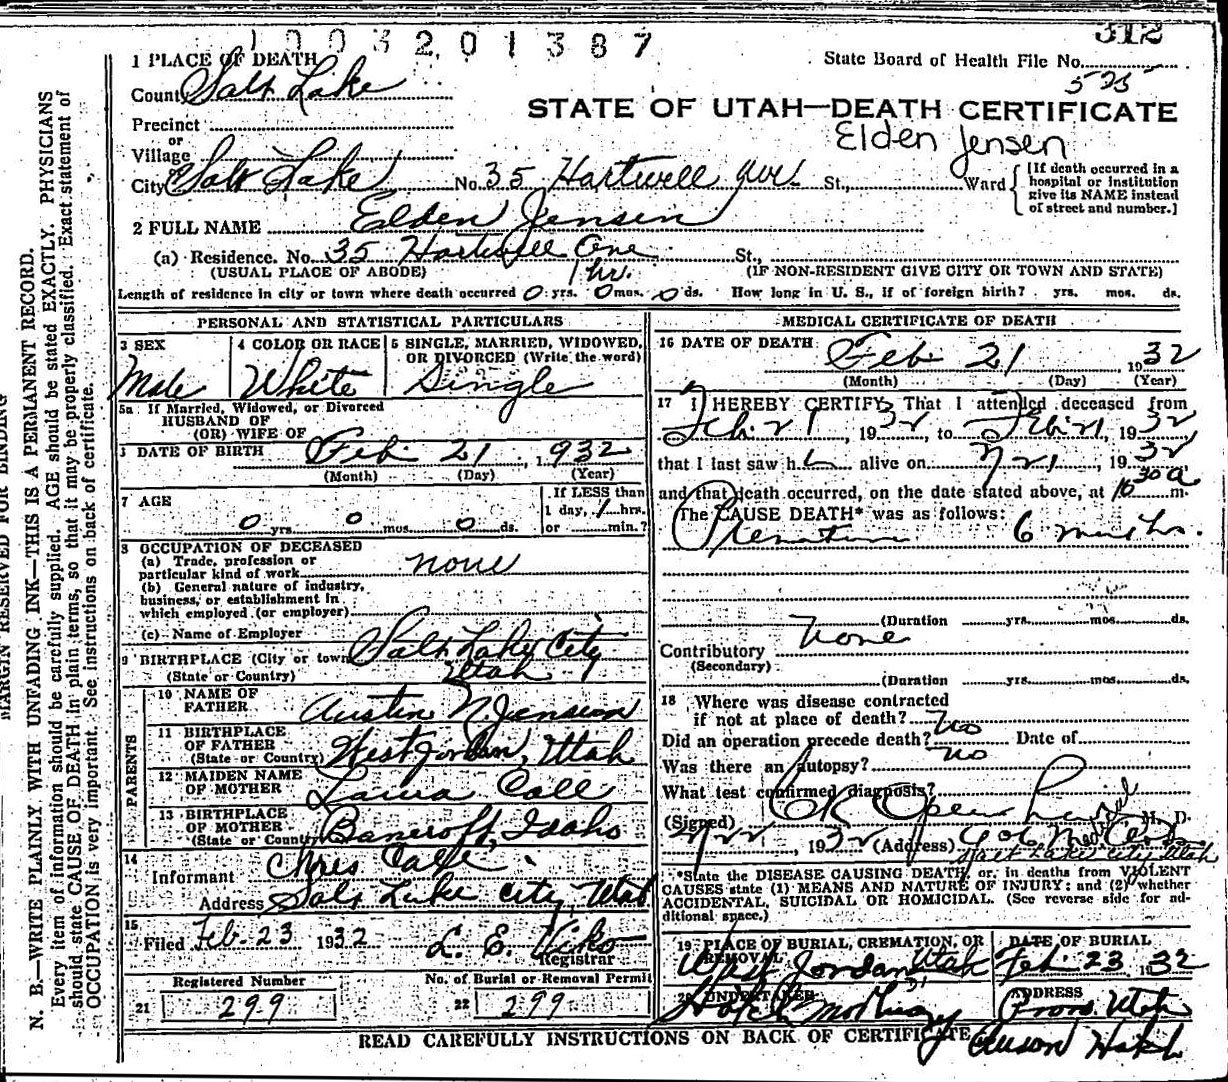 1003201387
312
1 PLACE OF DEATH
State Board of Health File No.
525
County Salt Lake
STATE OF UTAH—DEATH CERTIFICATE
Precinct
or
Village
Elden Jensen
City Salt Lake No. 35 Hartwell Ave. St., Ward
[If death occurred in a hospital or institution give its NAME instead of street and number.]
2 FULL NAME Elden Jensen
(a) Residence. No. 35 Hartwell Ave St.,
(USUAL PLACE OF ABODE) 1 hr. (IF NON-RESIDENT GIVE CITY OR TOWN AND STATE)
Length of residence in city or town where death occurred 0 yrs. 0 mos. 0 ds. How long in U. S., if of foreign birth? yrs. mos. ds.
PERSONAL AND STATISTICAL PARTICULARS
3 SEX
Male
4 COLOR OR RACE
White
5 SINGLE, MARRIED, WIDOWED,
OR DIVORCED (Write the word)
Single
5a If Married, Widowed, or Divorced
HUSBAND OF
(OR) WIFE OF
DATE OF BIRTH Feb 21, 1932
(Month) (Day) (Year)
7 AGE
0 yrs. 0 mos. 0 ds.
If LESS than
1 day, 1 hrs.
or min.?
8 OCCUPATION OF DECEASED
(a) Trade, profession or
particular kind of work none
(b) General nature of industry,
business, or establishment in
which employed (or employer)
(c) Name of Employer
9 BIRTHPLACE (City or town) Salt Lake City
(State or Country) Utah
PARENTS
10 NAME OF
FATHER Austin N. Jensen
11 BIRTHPLACE
OF FATHER
(State or Country) West Jordan, Utah
12 MAIDEN NAME
OF MOTHER Laura Call
13 BIRTHPLACE
OF MOTHER
(State or Country) Bancroft, Idaho
14
Informant Chres Call
Address Salt Lake City, Utah
15
Filed Feb. 23 1932 L. E. Viko
Registrar
Registered Number
21 299
No. of Burial or Removal Permit
22 299
MEDICAL CERTIFICATE OF DEATH
16 DATE OF DEATH Feb 21 1932
(Month) (Day) (Year)
17 I HEREBY CERTIFY, That I attended deceased from
Feb. 21, 1932, to Feb. 21, 1932
that I last saw h alive on 21, 1932
and that death occurred, on the date stated above, at 10 30 a m.
The CAUSE DEATH* was as follows:
Premature 6 months.
(Duration yrs. mos. ds.
Contributory None
(Secondary)
(Duration yrs. mos. ds.
18 Where was disease contracted
if not at place of death? No
Did an operation precede death? Date of
Was there an autopsy? no
What test confirmed diagnosis?
(Signed) M. D.
22, 1932 (Address) Medical
Salt Lake City, Utah
*State the DISEASE CAUSING DEATH, or, in deaths from VIOLENT
CAUSES state (1) MEANS AND NATURE OF INJURY: and (2) whether
ACCIDENTAL, SUICIDAL OR HOMICIDAL. (See reverse side for ad-
ditional space.)
19 PLACE OF BURIAL, CREMATION, OR
REMOVAL
West Jordan Utah
DATE OF BURIAL
Feb. 23 1932
20 UNDERTAKER
ADDRESS
Provo, Utah
READ CAREFULLY INSTRUCTIONS ON BACK OF CERTIFICATE
MARGIN RESERVED FOR BINDING
N. B.—WRITE PLAINLY WITH UNFADING INK—THIS IS A PERMANENT RECORD.
Every item of information should be carefully supplied. AGE should be stated EXACTLY. PHYSICIANS
should state CAUSE OF DEATH in plain terms, so that it may be properly classified. Exact statement of
OCCUPATION is very important. See instructions on back of certificate.